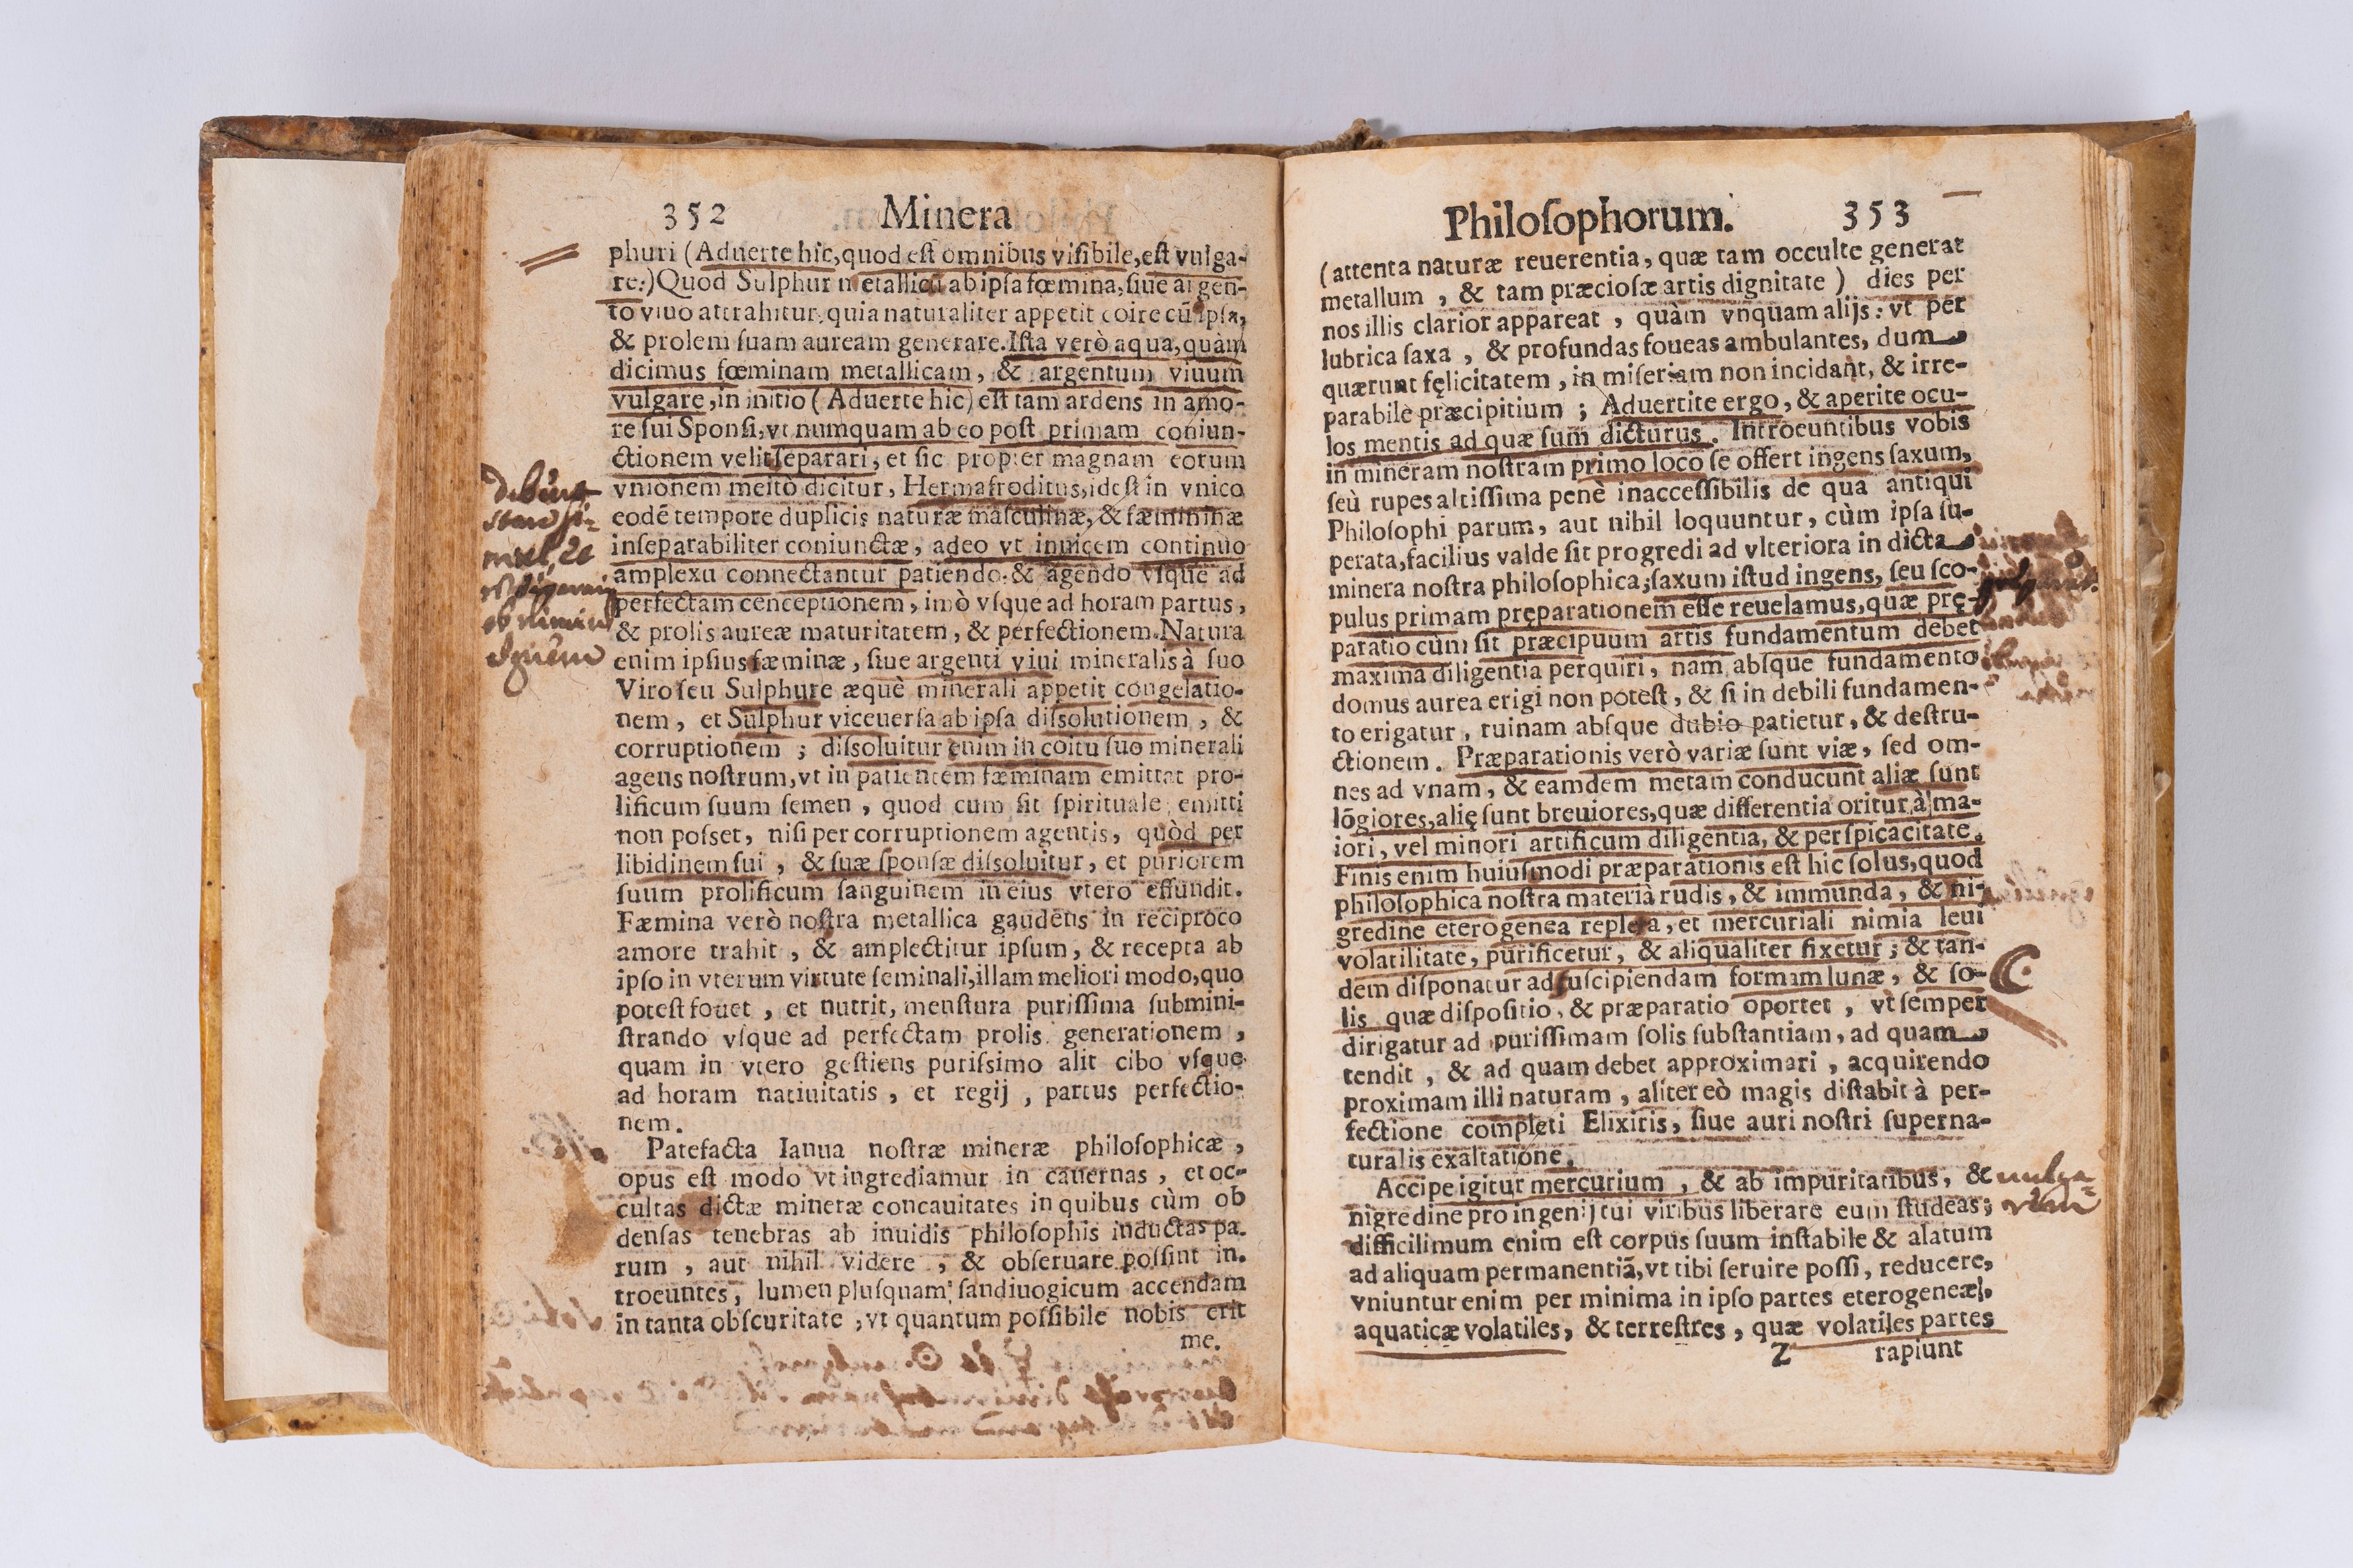 352 Minera
phuri (Aduerte hic, quod est omnibus visibile, est vulga-
re.) Quod Sulphur metallicũ ab ipsa fœmina, siue argen-
to viuo attrahitur, quia naturaliter appetit coire cũ ipsa,
& prolem suam auream generare. Ista verò aqua, quàm
dicimus fœminam metallicam, & argentum viuum
vulgare, in initio (Aduerte hic) est tam ardens in amo-
re sui Sponsi, vt numquam ab eo post primam coniun-
ctionem velit separari, et sic propter magnam eorum
vnionem meitò dicitur, Hermafroditus, idest in vnico
eodẽ tempore duplicis naturæ masculinæ, & fæmininæ
inseparabiliter coniunctæ, adeo vt inuicem continuo
amplexu connectantur patiendo, & agendo vsque ad
perfectam cenceptionem, imò vsque ad horam partus,
& prolis aureæ maturitatem, & perfectionem. Natura
enim ipsius fæminæ, siue argenti viui mineralis à suo
Viro seu Sulphure æquè minerali appetit congelatio-
nem, et Sulphur viceuersa ab ipsa dissolutionem, &
corruptionem; dissoluitur enim in coitu suo minerali
agens nostrum, vt in patientem fæminam emittat pro-
lificum suum semen, quod cum sit spirituale emitti
non posset, nisi per corruptionem agentis, quòd per
libidinem sui, & suæ sponsæ dissoluitur, et puriorem
suum prolificum sanguinem in eius vtero effundit.
Fæmina verò nostra metallica gaudens in reciproco
amore trahit, & amplectitur ipsum, & recepta ab
ipso in vterum virtute seminali, illam meliori modo, quo
potest fouet, et nutrit, menstura purissima submini-
strando vsque ad perfectam prolis generationem,
quam in vtero gestiens purissimo alit cibo vsque
ad horam natiuitatis, et regij, partus perfectio-
nem.
Patefacta Ianua nostræ mineræ philosophicæ,
opus est modo vt ingrediamur in cauernas, et oc-
cultas dictæ mineræ concauitates in quibus cùm ob
densas tenebras ab inuidis philosophis inductas pa.
rum, aut nihil videre, & obseruare possint in.
troeuntes, lumen plusquam sandiuogicum accendam
in tanta obscuritate, vt quantum possibile nobis erit
me.
Philosophorum. 353
(attenta naturæ reuerentia, quæ tam occulte generat
metallum, & tam præciosæ artis dignitate) dies per
nos illis clarior appareat, quàm vnquam alijs: vt per
lubrica saxa, & profundas foueas ambulantes, dum
quærunt fęlicitatem, in miseriam non incidant, & irre-
parabile præcipitium; Aduertite ergo, & aperite ocu-
los mentis ad quæ sum dicturus. Introeuntibus vobis
in mineram nostram primo loco se offert ingens saxum,
seù rupes altissima penè inaccessibilis de qua antiqui
Philosophi parum, aut nihil loquuntur, cùm ipsa su-
perata, facilius valde sit progredi ad vlteriora in dicta
minera nostra philosophica; saxum istud ingens, seu sco-
pulus primam pręparationem esse reuelamus, quæ prę-
paratio cùm sit præcipuum artis fundamentum debet
maxima diligentia perquiri, nam absque fundamento
domus aurea erigi non potest, & si in debili fundamen-
to erigatur, ruinam absque dubio patietur, & destru-
ctionem. Præparationis verò variæ sunt viæ, sed om-
nes ad vnam, & eamdem metam conducunt aliæ sunt
lõgiores, alię sunt breuiores, quæ differentia oritur à ma-
iori, vel minori artificum diligentia, & perspicacitate.
Finis enim huiusmodi præparationis est hic solus, quod
philosophica nostra materià rudis, & immunda, & ni-
gredine eterogenea repleta, et mercuriali nimia leui
volatilitate, purificetur, & aliqualiter fixetur; & tan-
dem disponatur ad suscipiendam formam lunæ, & so-
lis quæ dispositio, & præparatio oportet, vt semper
dirigatur ad purissimam solis substantiam, ad quam
tendit, & ad quam debet approximari, acquirendo
proximam illi naturam, aliter eò magis distabit à per-
fectione completi Elixiris, siue auri nostri superna-
turalis exaltatione.
Accipe igitur mercurium, & ab impuritatibus, & vulga-
nigredine pro ingenij tui viribus liberare eum studeas; rem
difficilimum enim est corpus suum instabile & alatum
ad aliquam permanentiã, vt tibi seruire possi, reducere,
vniuntur enim per minima in ipso partes eterogeneæ,
aquaticæ volatiles, & terrestres, quæ volatiles partes
Z rapiunt